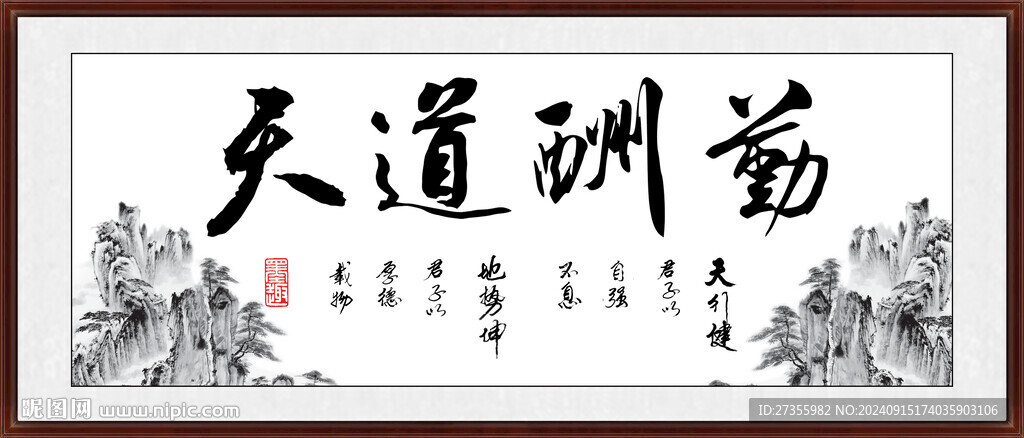 天道酬勤
天行健
君子以
自强
不息
地势坤
君子以
厚德
载物
昵图网 www.nipic.com
ID:27355982 NO:20240915174035903106